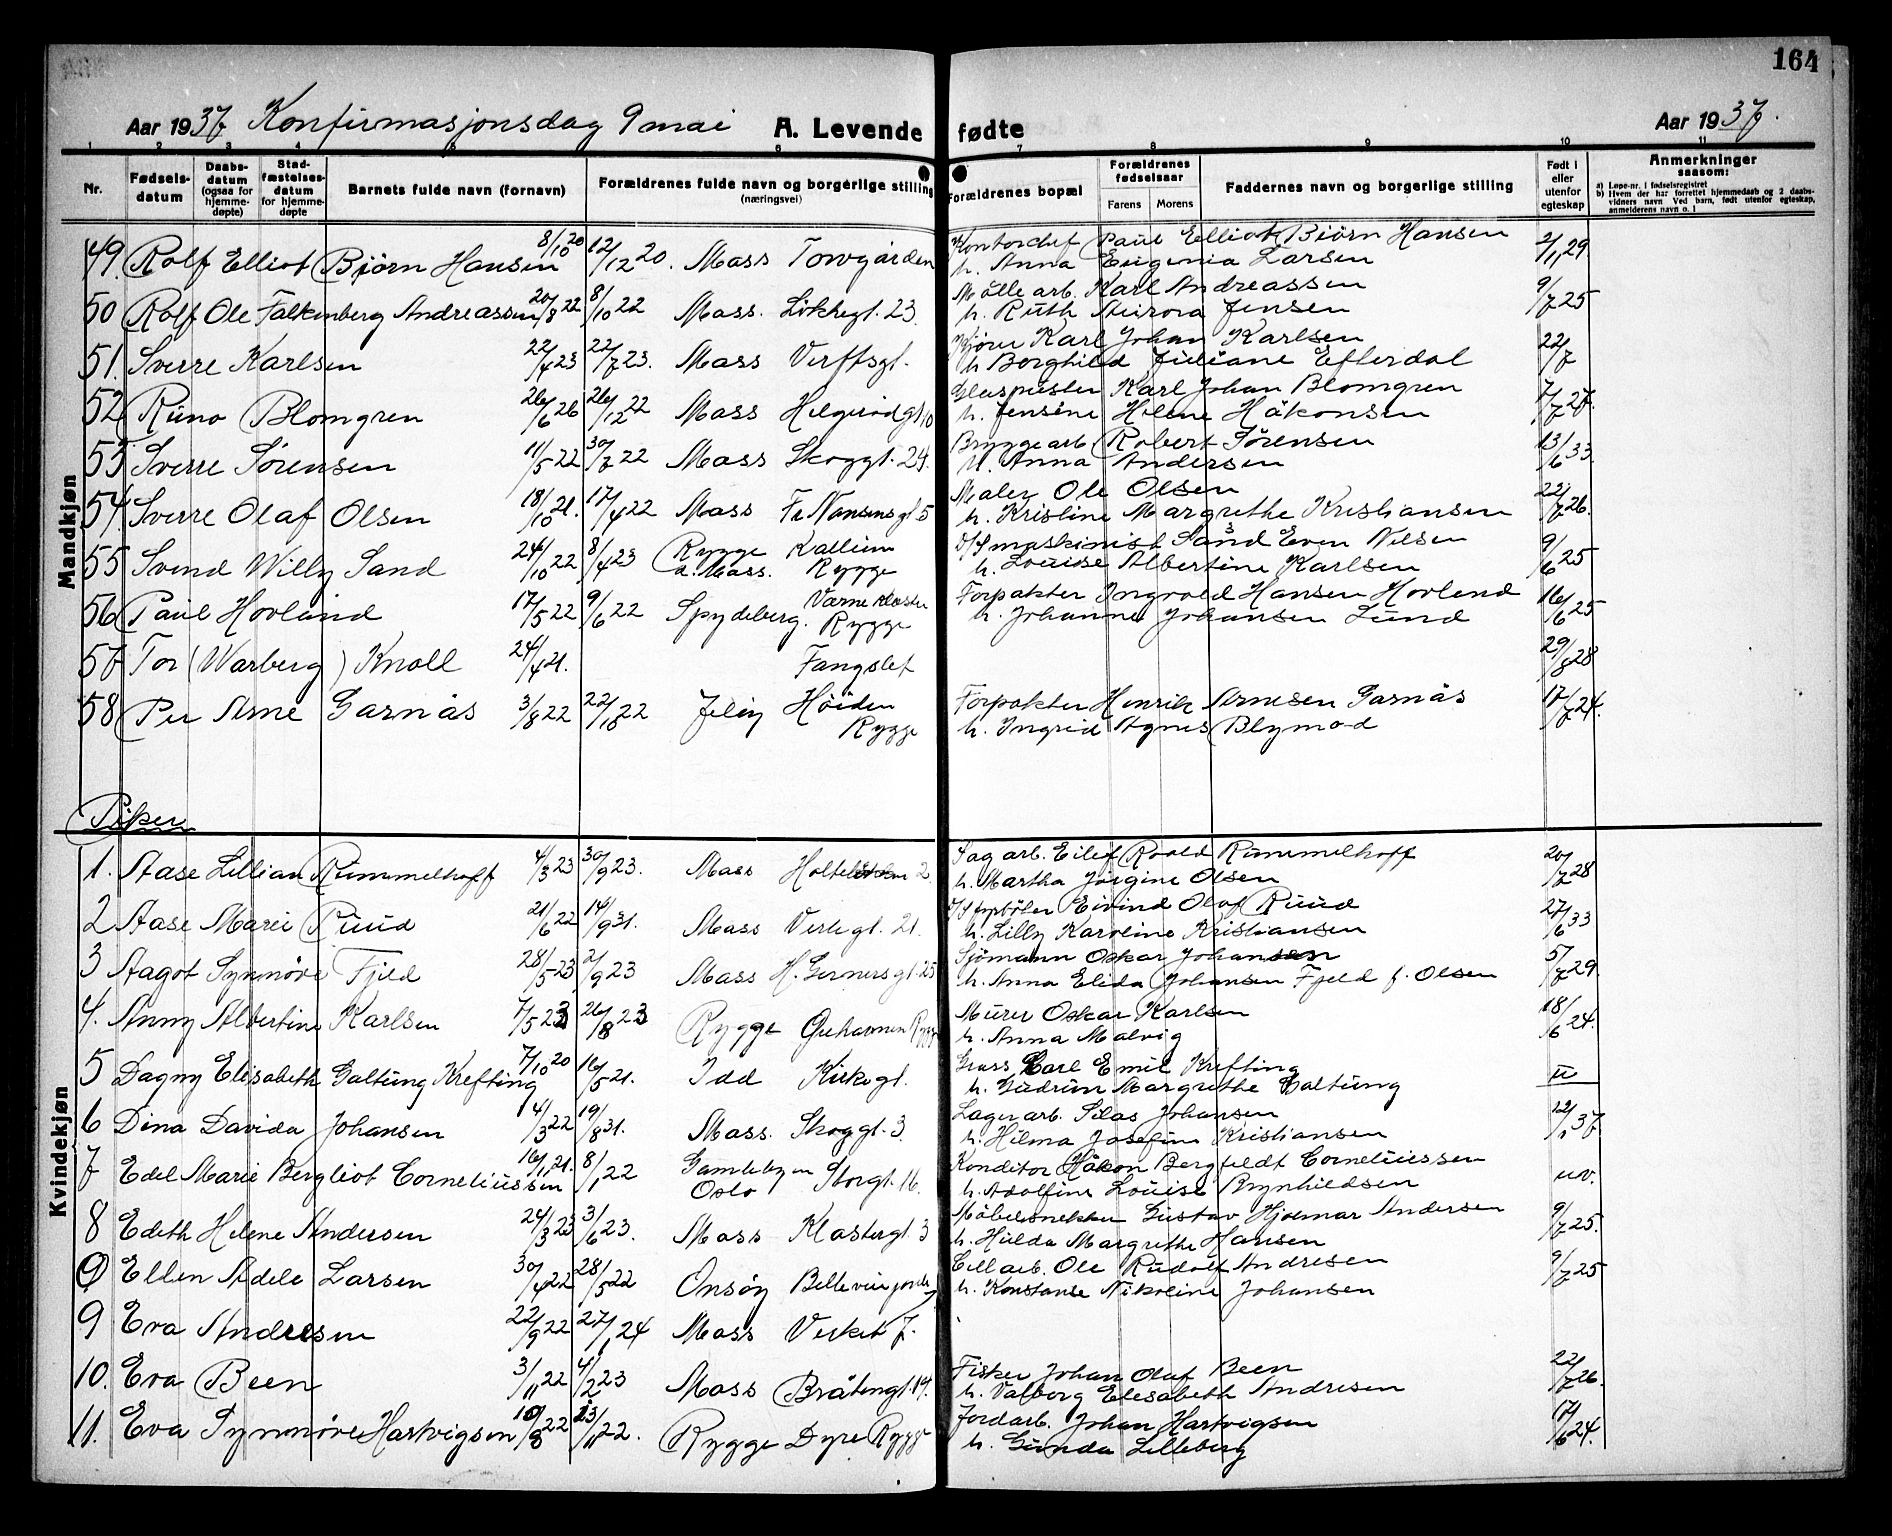 164
Aar 1937 Konfirmasjonsdag 9 mai A. Levende fødte Aar 1937.
1 2 3 4 5 6 7 8 9 10 11
Nr. Fødselsdatum Daabsdatum (ogsaa for hjemmedøpte) Stadfæstelsesdatum for hjemmedøpte Barnets fulde navn (fornavn) Forældrenes fulde navn og borgerlige stilling (næringsvei) Forældrenes bopæl Forældrenes fødselsaar Farens Morens Faddernes navn og borgerlige stilling Født i eller utenfor egteskap Anmerkninger saasom:
a) Løpe-nr. i fødselsregistret
b) Hvem der har forrettet hjemmedaab og 2 daabsvidners navn Ved barn, født utenfor egteskap, anmelderens navn o. l
Mandkjøn
49. Rolf Elliot Bjørn Hansen 8/10 20 12/12 20. Moss Torvgården Kontorchef Paul Elliot Bjørn Hansen 2/11 29
h. Anna Eugenia Larsen
50 Rolf Ole Falkenberg Andreassen 20/8 22 8/10 22 Moss. Løkkegt. 23. Mølle arb. Karl Andreassen 9/7 25
h. Ruth Aurora Jensen
51. Sverre Karlsen 22/4 23 22/7 23. Moss Verftsgt. Kjører Karl Johan Karlsen 22/7
h Borghild Juliane Efterdal
52 Runo Blomgren 26/6 26 26/12 22 Moss Helgerødgt. 10 Glaspuster Karl Johan Blomgren 7/7 27.
h. Jensine Helene Håkonsen
53 Sverre Sørensen 11/5 22 30/7 22 Moss Skoggt. 24. Bryggearb Robert Sørensen 13/6 33.
h. Anna Andersen
54 Sverre Olaf Olsen 18/10 21. 17/4 22 Moss Fr Nansensgt 5 Maler Ole Olsen 22/7 26.
h. Kristine Margrethe Kristiansen
55 Svend Willy Sand 24/10 22 8/4 23 Rygge Kallum D/S maskinist Sand Even Nilsen 9/6 25
a. Moss. Rygge h. Louise Albertine Karlsen
56 Paul Hovland 17/5 22 9/6 22 Spydeberg. Varne Kloster Forpakter Ingvald Hansen Hovland 16/6 25
Rygge h. Johanne Johansen Lund
57 Tor (Warberg) Knoll 24/4 21. Fangslet 29/8 28
58 Per Arne Garnås 3/8 22 22/10 22 Jeløy Höiden Forpakter Henrik Arnesen Garnås 17/7 24.
Rygge h. Ingrid Agnes Blymod
Piker
Kvindekjøn
1. Aase Lillian Rummelhoff 4/3 23 30/9 23. Moss 2. Sagarb. Eilef Roald Rummelhoff 20/7 28
h. Martha Jørgine Olsen
2 Aase Marie Ruud 21/6 22 14/9 31. Moss Verlegt. 21. D/S fyrbøter Eivind Olaf Ruud 27/6 33
h. Lilly Karoline Kristiansen
3 Aagot Synnøve Fjeld 28/5 23 2/9 23 Moss H. Gernersgt. 25 Sjømann Oskar Johansen 5/7 29.
h. Anna Elida Johansen Fjeld f. Olsen
4. Anny Albertine Karlsen 7/5 23 26/8 23 Rygge Rygge Murer Oskar Karlsen 18/6 24.
h. Anna Malvig
5 Dagny Elisabeth Galtung Krefting 7/10 20 16/5 21. Idd Kirkegt. Gross. Carl Emil Krefting u
h. Gudrun Margrethe Galtung
6 Dina Davida Johansen 14/3 22 19/8 31. Moss. Skoggt. 3. Lagerarb. Silas Johansen 22/1 37.
h. Hilma Josefine Kristiansen
7 Edel Marie Bergliot Corneliussen 16/1 21. 8/1 22 Gamlebyen Storgt. 16. Konditor Håkon Bergfeldt Corneliussen uv.
Oslo h. Adolfine Louise Brynhildsen
8 Edith Helene Andersen 24/3 23 3/6 23. Moss Klostergt. 3 Møbelsnekker Gustav Hjalmar Andersen 9/7 25.
h. Hulda Margrethe Hansen
9 Ellen Adele Larsen 30/4 22 28/5 22 Onsøy Cell arb. Ole Rudolf Andresen 9/7 25
h. Konstanse Nikoline Johansen
9 Eva Andresen 22/9 22 27/1 24 Moss Verket 7.
10. Eva Been 3/11 22 4/2 23 Moss Bråtengt. 14. Fisker Johan Olaf Been 22/7 26.
h. Valborg Elisabeth Andresen
11. Eva Synnøve Hartvigsen 10/8 22 23/11 22. Rygge Dyre Rygge Jordarb. Johan Hartvigsen 17/6 24.
h. Gunda Lilleberg